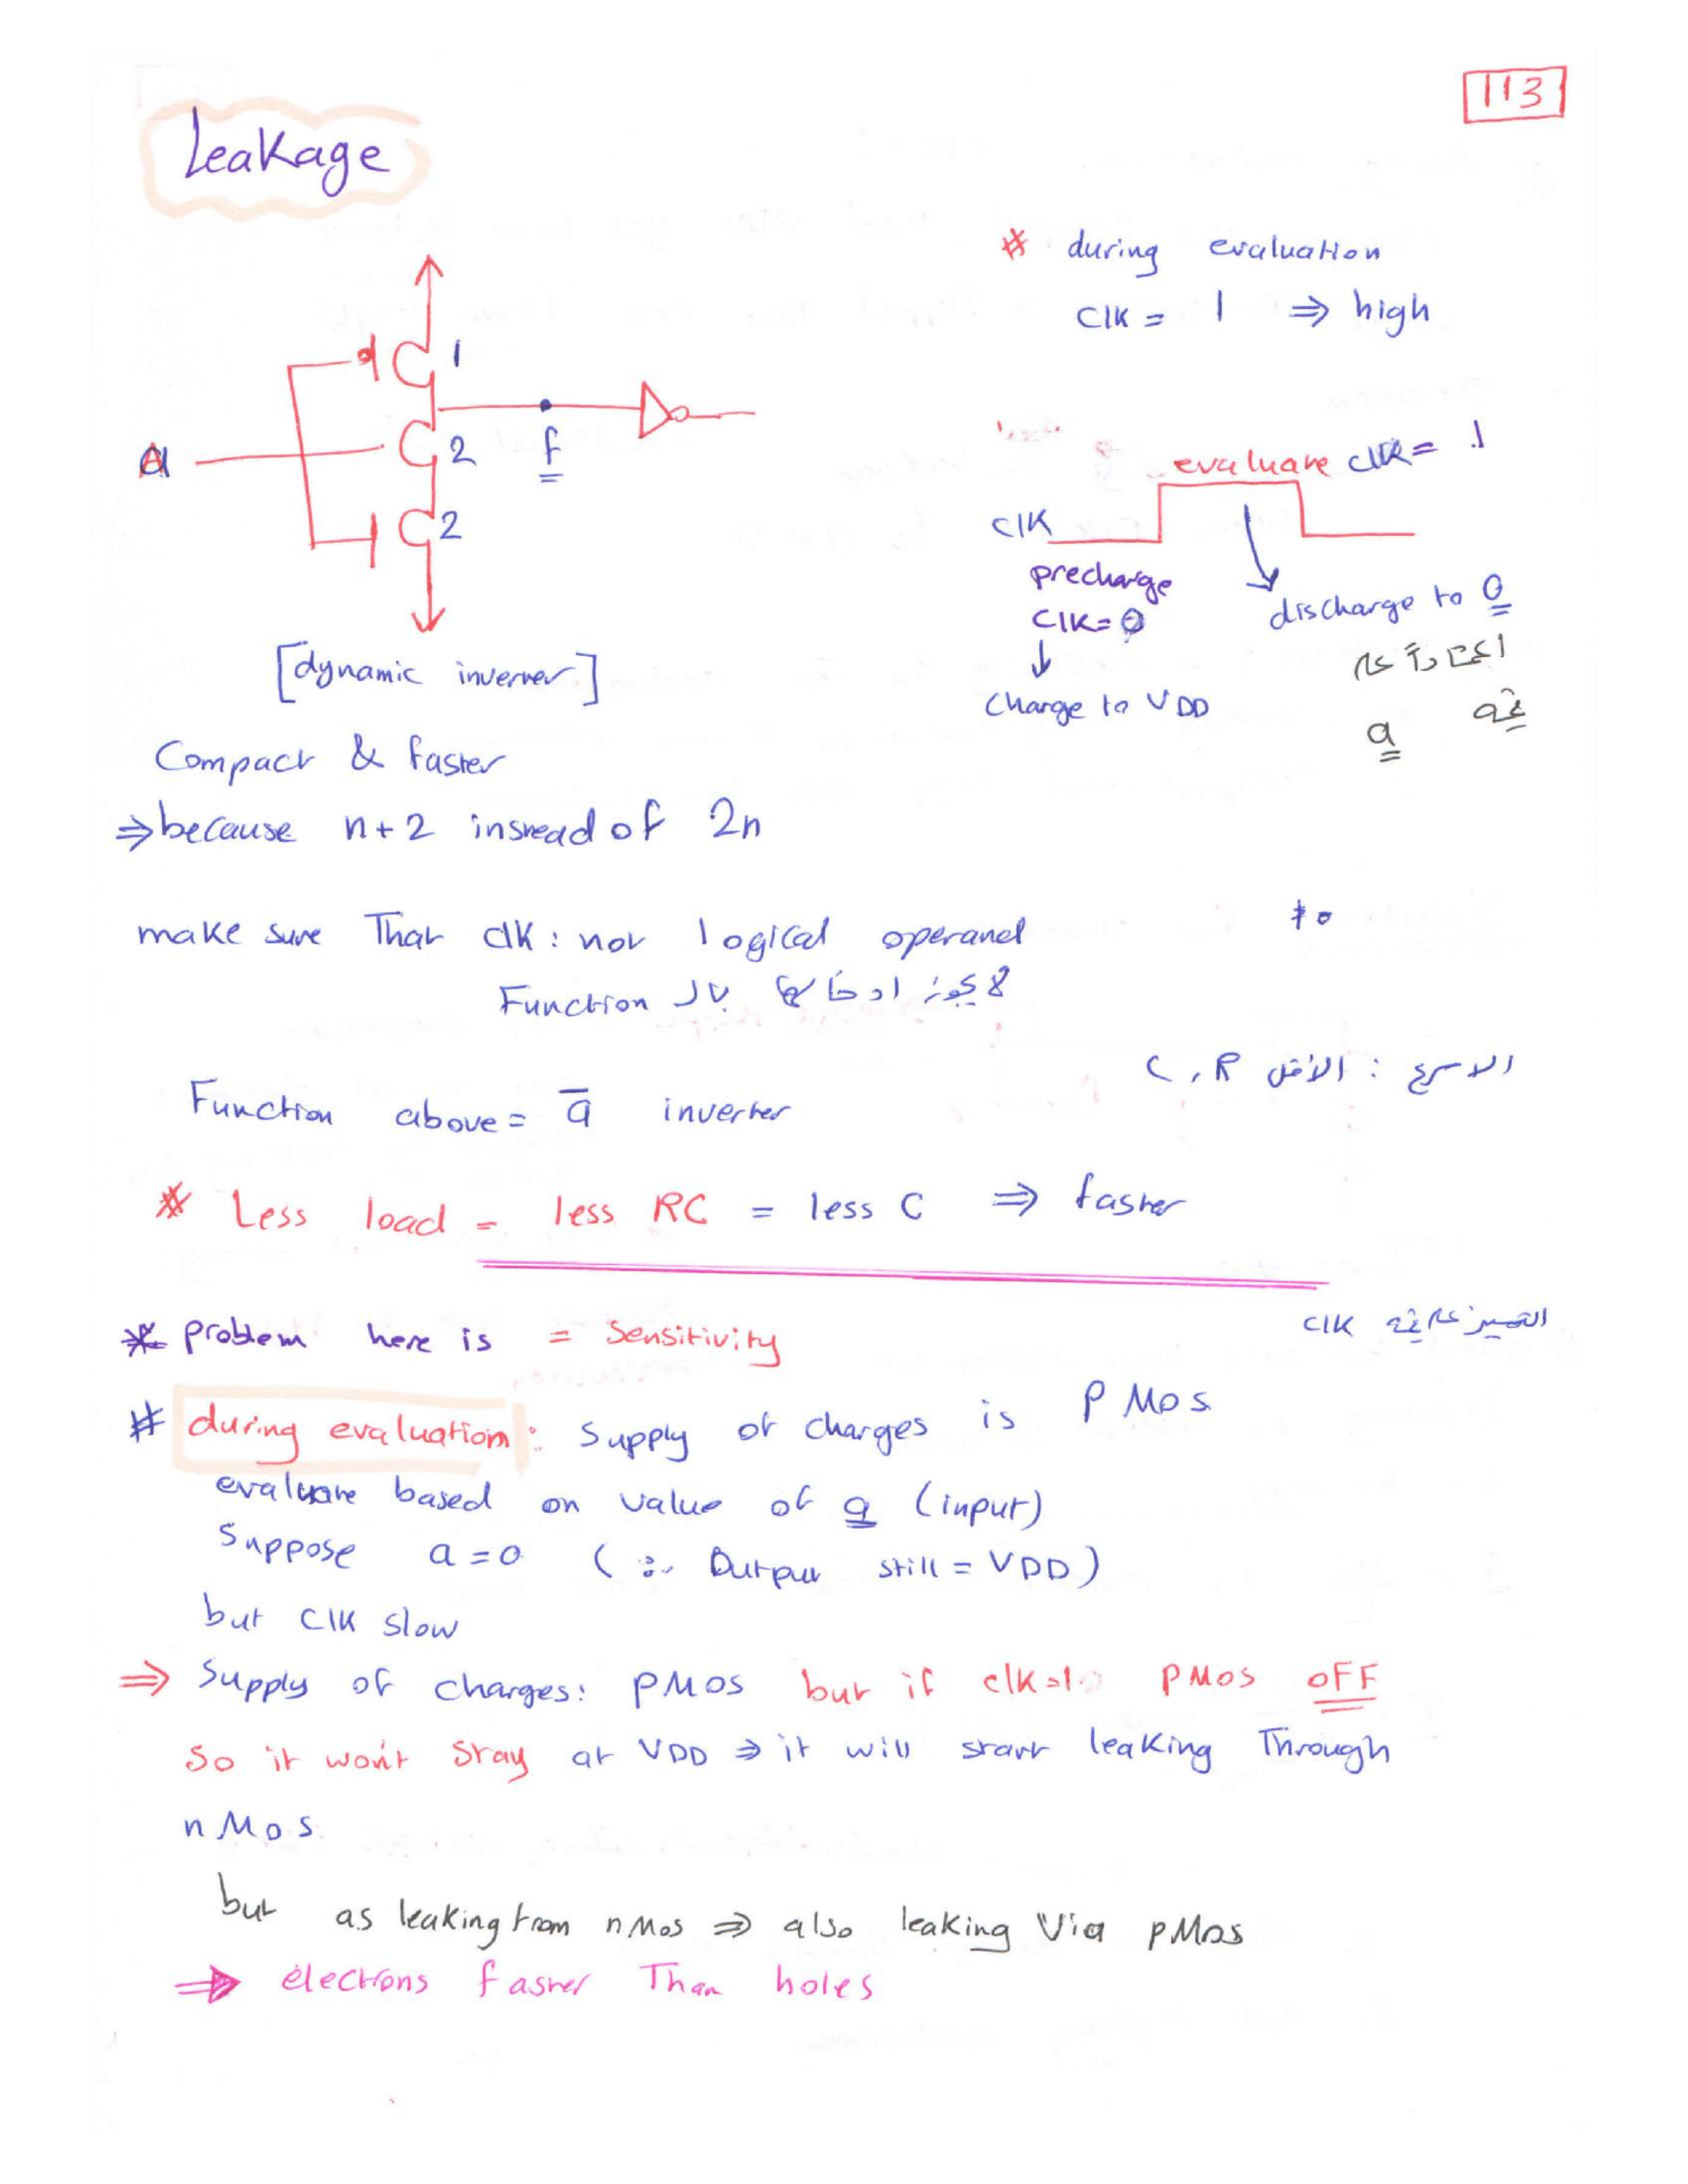 113
Leakage
# during evaluation
Clk = 1 ⇒ high
1
a
2
f
2
evaluate clk = 1
clk
precharge
Clk = 0
↓
Charge to VDD
discharge to 0
اعتماداً على
قيمة
a
[dynamic inverter]
Compact & faster
⇒ because n+2 instead of 2n
make sure That clk : not logical operand
لا يجوز ادخالها بال Function
الاسرع : الأقل C , R
Function above = a̅ inverter
* Less load = less RC = less C ⇒ faster
* problem here is = Sensitivity
clk
# during evaluation : supply of charges is PMOS
evaluate based on value of a (input)
Suppose a = 0 (∴ Output still = VDD)
but Clk slow
⇒ Supply of charges: PMOS but if clk=1 PMOS OFF
So it won't stay at VDD ⇒ it will start leaking Through
nMos
but as leaking from nMos ⇒ also leaking Via pMos
⇒ electrons faster Than holes